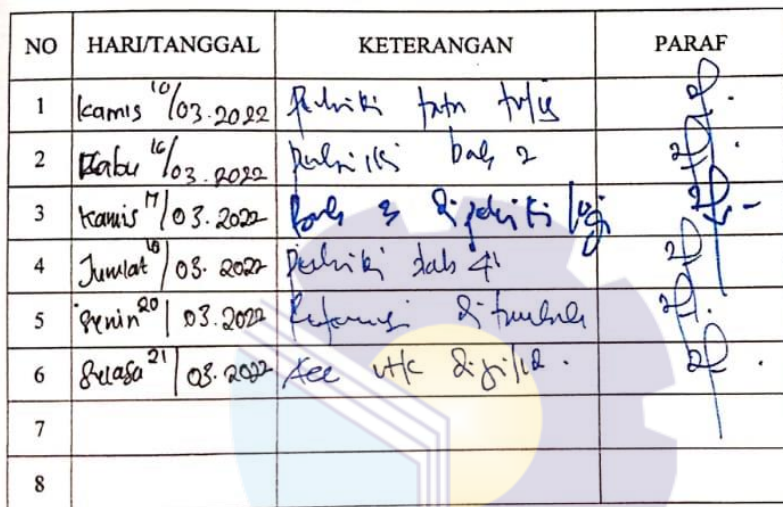 NO HARI/TANGGAL KETERANGAN PARAF
1 Kamis 10/03.2022 Perbaiki tata tulis
2 Rabu 16/03.2022 perbaiki bab 2
3 Kamis 17/03.2022 bab 3 diperbaiki lagi
4 Jum'at 18/03.2022 Perbaiki bab 4
5 Senin 20/03.2022 Referensi ditambah
6 Selasa 21/03.2022 Acc utk dijilid.
7
8